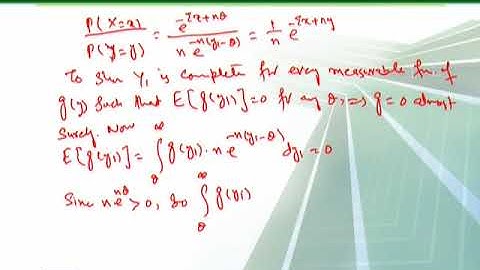 P(X=x) / P(Y=y) = e^{-Σx+nθ} / n e^{-n(y₁-θ)} = 1/n e^{-Σx+ny}
To show Y₁ is complete for every measurable fn. of
g(y) such that E[g(y₁)]=0 for any θ, ⇒ g=0 almost
surely. Now
E[g(y₁)] = ∫_θ^∞ g(y₁) · n e^{-n(y₁-θ)} dy₁ = 0
Since n e^{nθ} > 0, so ∫_θ^∞ g(y₁)